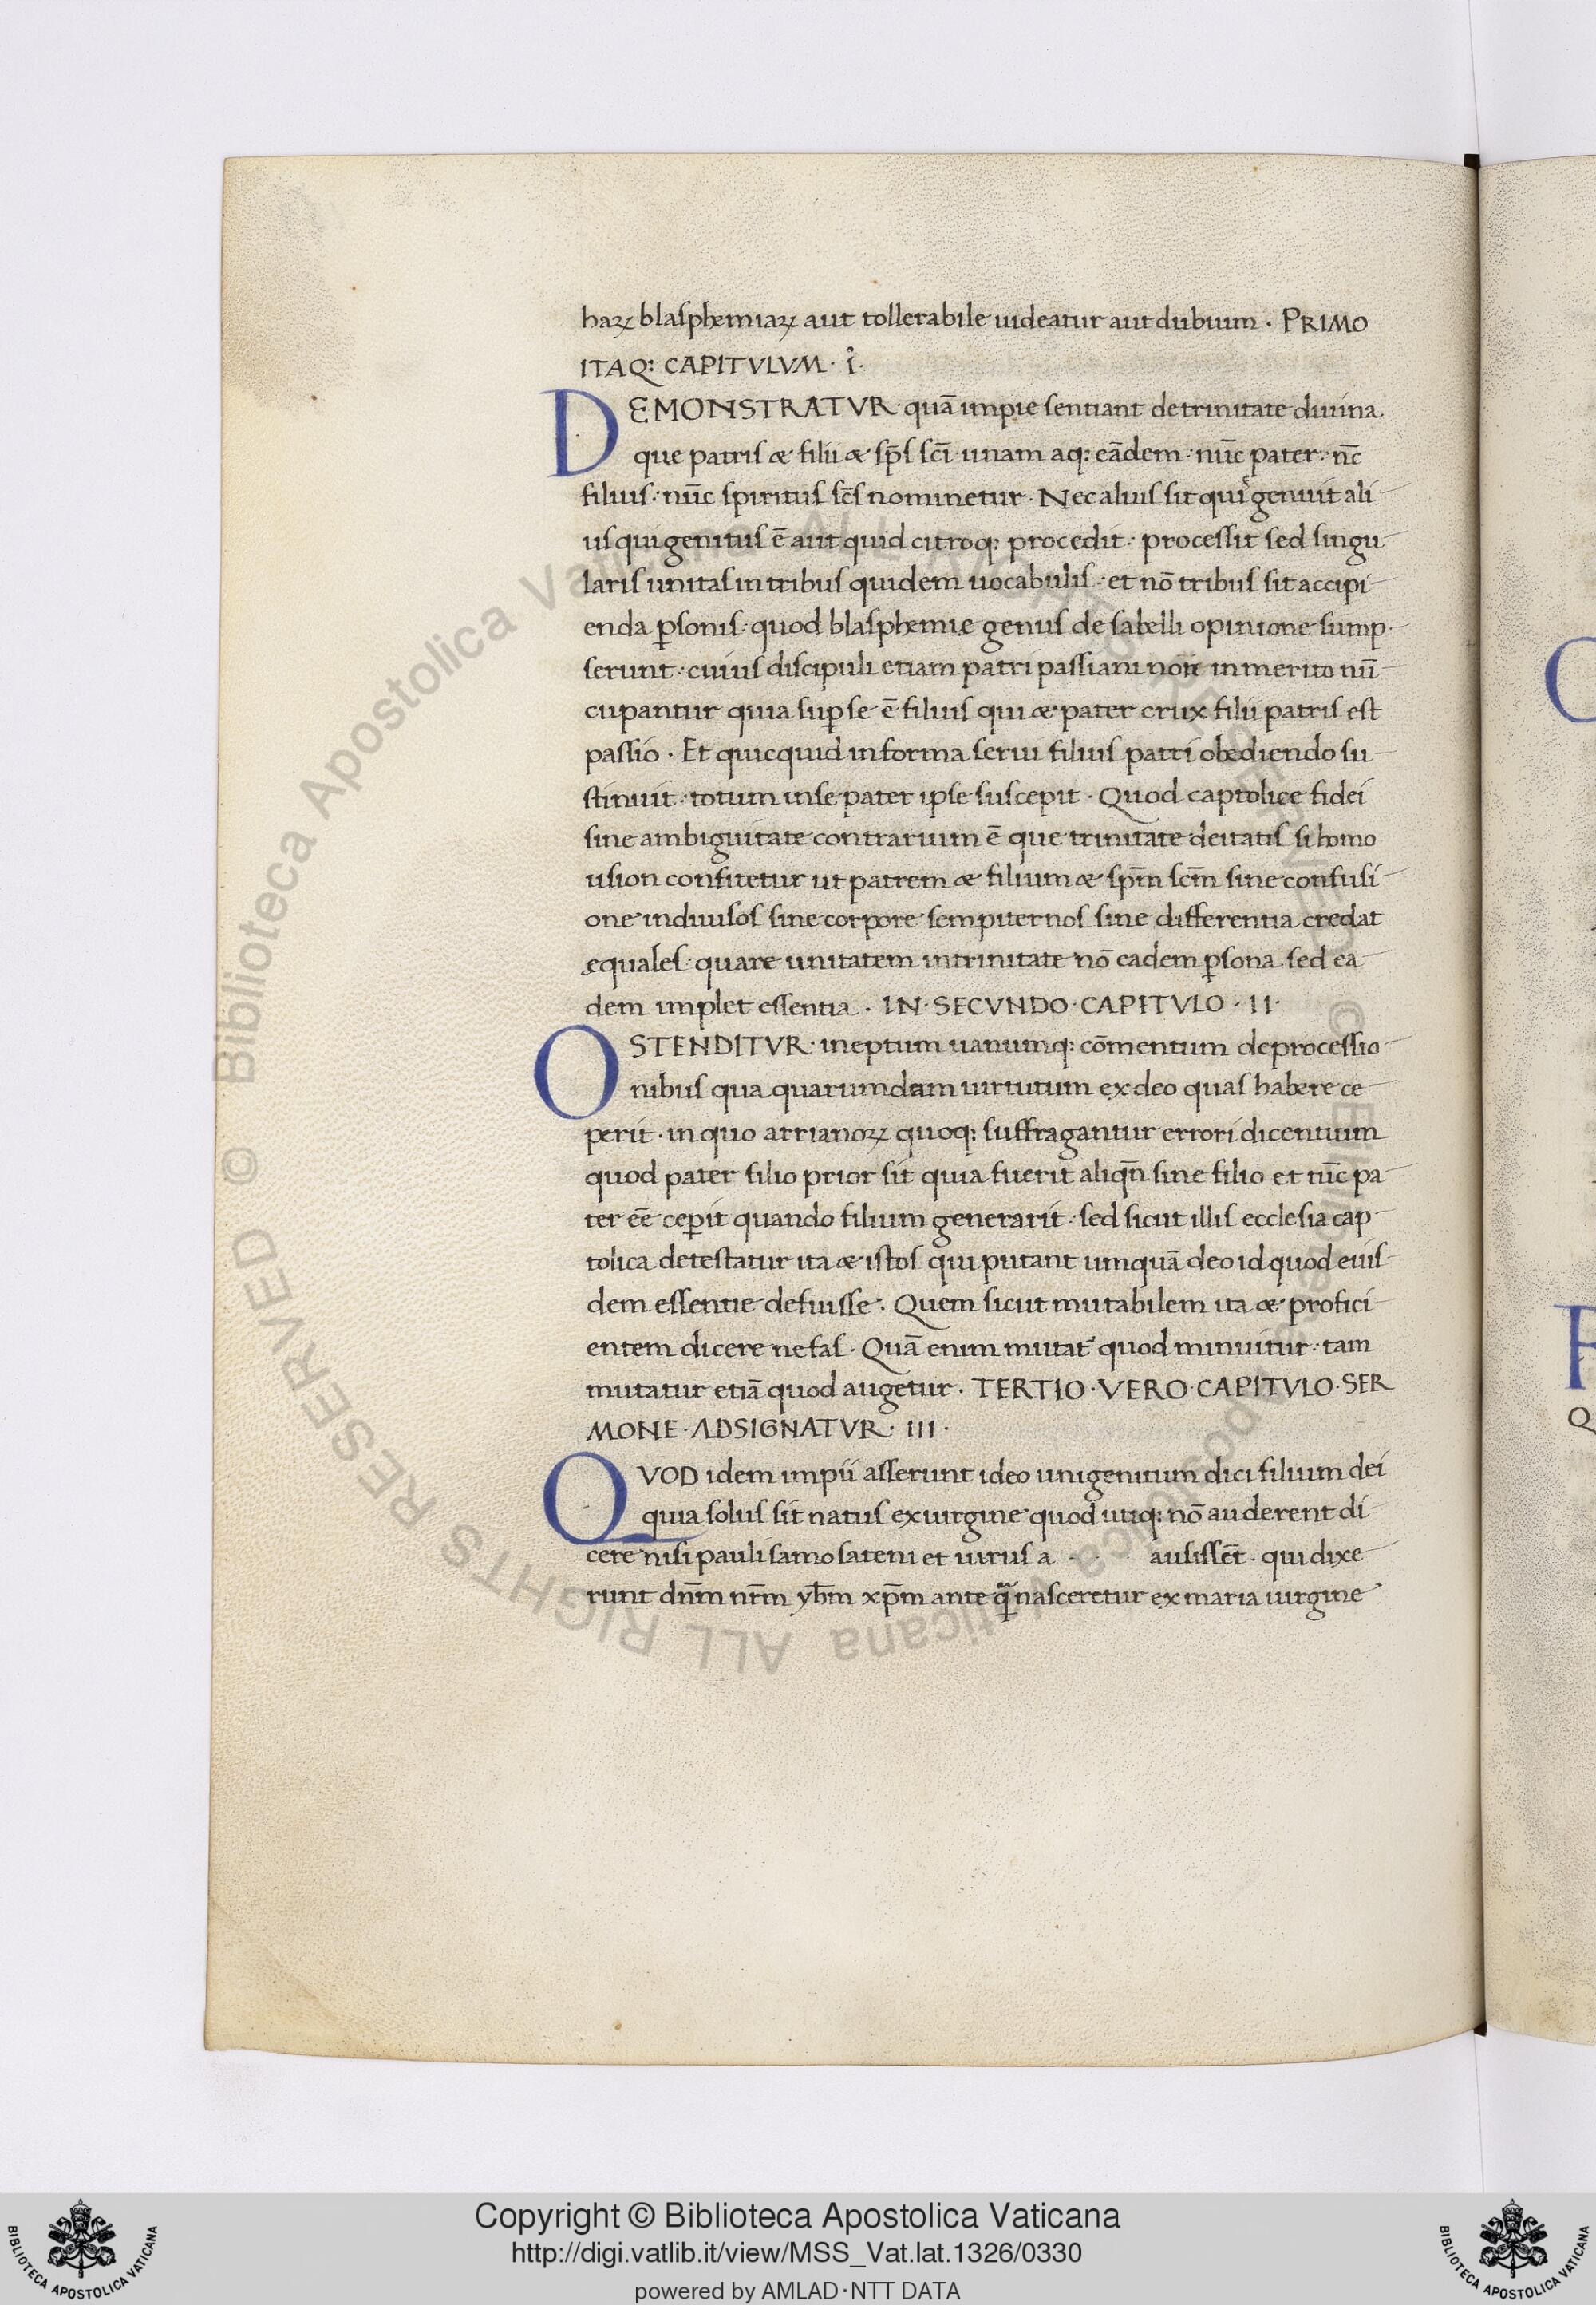 haꝝ blasphemiaꝝ aut tollerabile uideatur aut dubium . PRIMO
ITAQ: CAPITVLVM · I ·
DEMONSTRATVR quā impie sentiant de trinitate diuina
que patris & filii & sp̄s sc̄i unam aq: eādem · nūc pater · nc̄
filius · nūc spiritus sc̄s nominetur · Nec alius sit qui genuit ali
us qui genitus ē aut quid citroq: procedit · processit sed singu
laris unitas in tribus quidem uocabulis · et nō tribus sit accipi
enda ꝑsonis · quod blasphemie genus de sabelli opinione sump
serunt · cuius discipuli etiam patri passiani non inmerito nū
cupantur quia suꝑ se ē filius qui & pater crux filii patris est
passio · Et quicquid in forma serui filius patri obediendo su
stinuit · totum in se pater ipse suscepit · Quod captolice fidei
sine ambiguitate contrarium ē que trinitate deitatis si homo
usion confitetur ut patrem & filium & sp̄m sc̄m sine confusi
one indiuisos sine corpore sempiternos sine differentia credat
ęquales · quare unitatem in trinitate nō eadem ꝑsona sed ea
dem implet essentia · IN · SECVNDO · CAPITVLO · II ·
OSTENDITVR · ineptum uanumq: cōmentum de processio
nibus qua quarumdam uirtutum ex deo quas habere ce
perit · in quo arrianoꝝ quoq: suffragantur errori dicentium
quod pater filio prior sit quia fuerit aliqn̄ sine filio et tūc pa
ter eē ceꝑit quando filium generarit · sed sicut illis ecclesia cap
tolica detestatur ita & istos qui putant umquā deo id quod eius
dem essentie defuisse · Quem sicut mutabilem ita & profici
entem dicere nefas · Quā enim mutat' quod minuitur · tam
mutatur etiā quod augetur · TERTIO · VERO · CAPITVLO · SER
MONE · ADSIGNATVR · III ·
QVOD idem impii asserunt ideo unigenitum dici filium dei
quia solus sit natus ex uirgine quod utiq: nō auderent di
cere nisi pauli samosateni et uirus a · · ausissēt · qui dixe
runt dn̄m nr̄m yħm xp̄m ante q̄ nasceretur ex maria uirgine
Q
Biblioteca Apostolica Vaticana ALL RIGHTS RESERVED © Biblioteca Apostolica Vaticana ALL RIGHTS RESERVED ©
Copyright © Biblioteca Apostolica Vaticana
http://digi.vatlib.it/view/MSS_Vat.lat.1326/0330
powered by AMLAD·NTT DATA
BIBLIOTECA APOSTOLICA VATICANA
BIBLIOTECA APOSTOLICA VATICANA